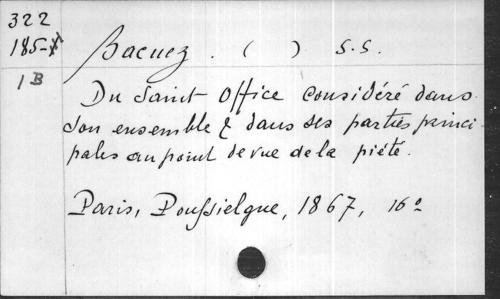 322
185-
Bacuez . ( ) S.S.
1 B
Du Saint Office considéré dans
son ensemble & dans ses parties princi
pales au point de vue de la piété.
Paris, Poussielgue, 1867, 16º